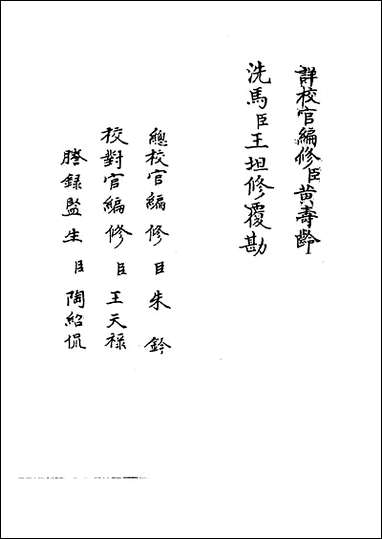 詳校官編修臣黃壽齡
洗馬臣王坦修覆勘
總校官編修臣朱鈐
校對官編修臣王天祿
謄錄監生臣陶紹侃